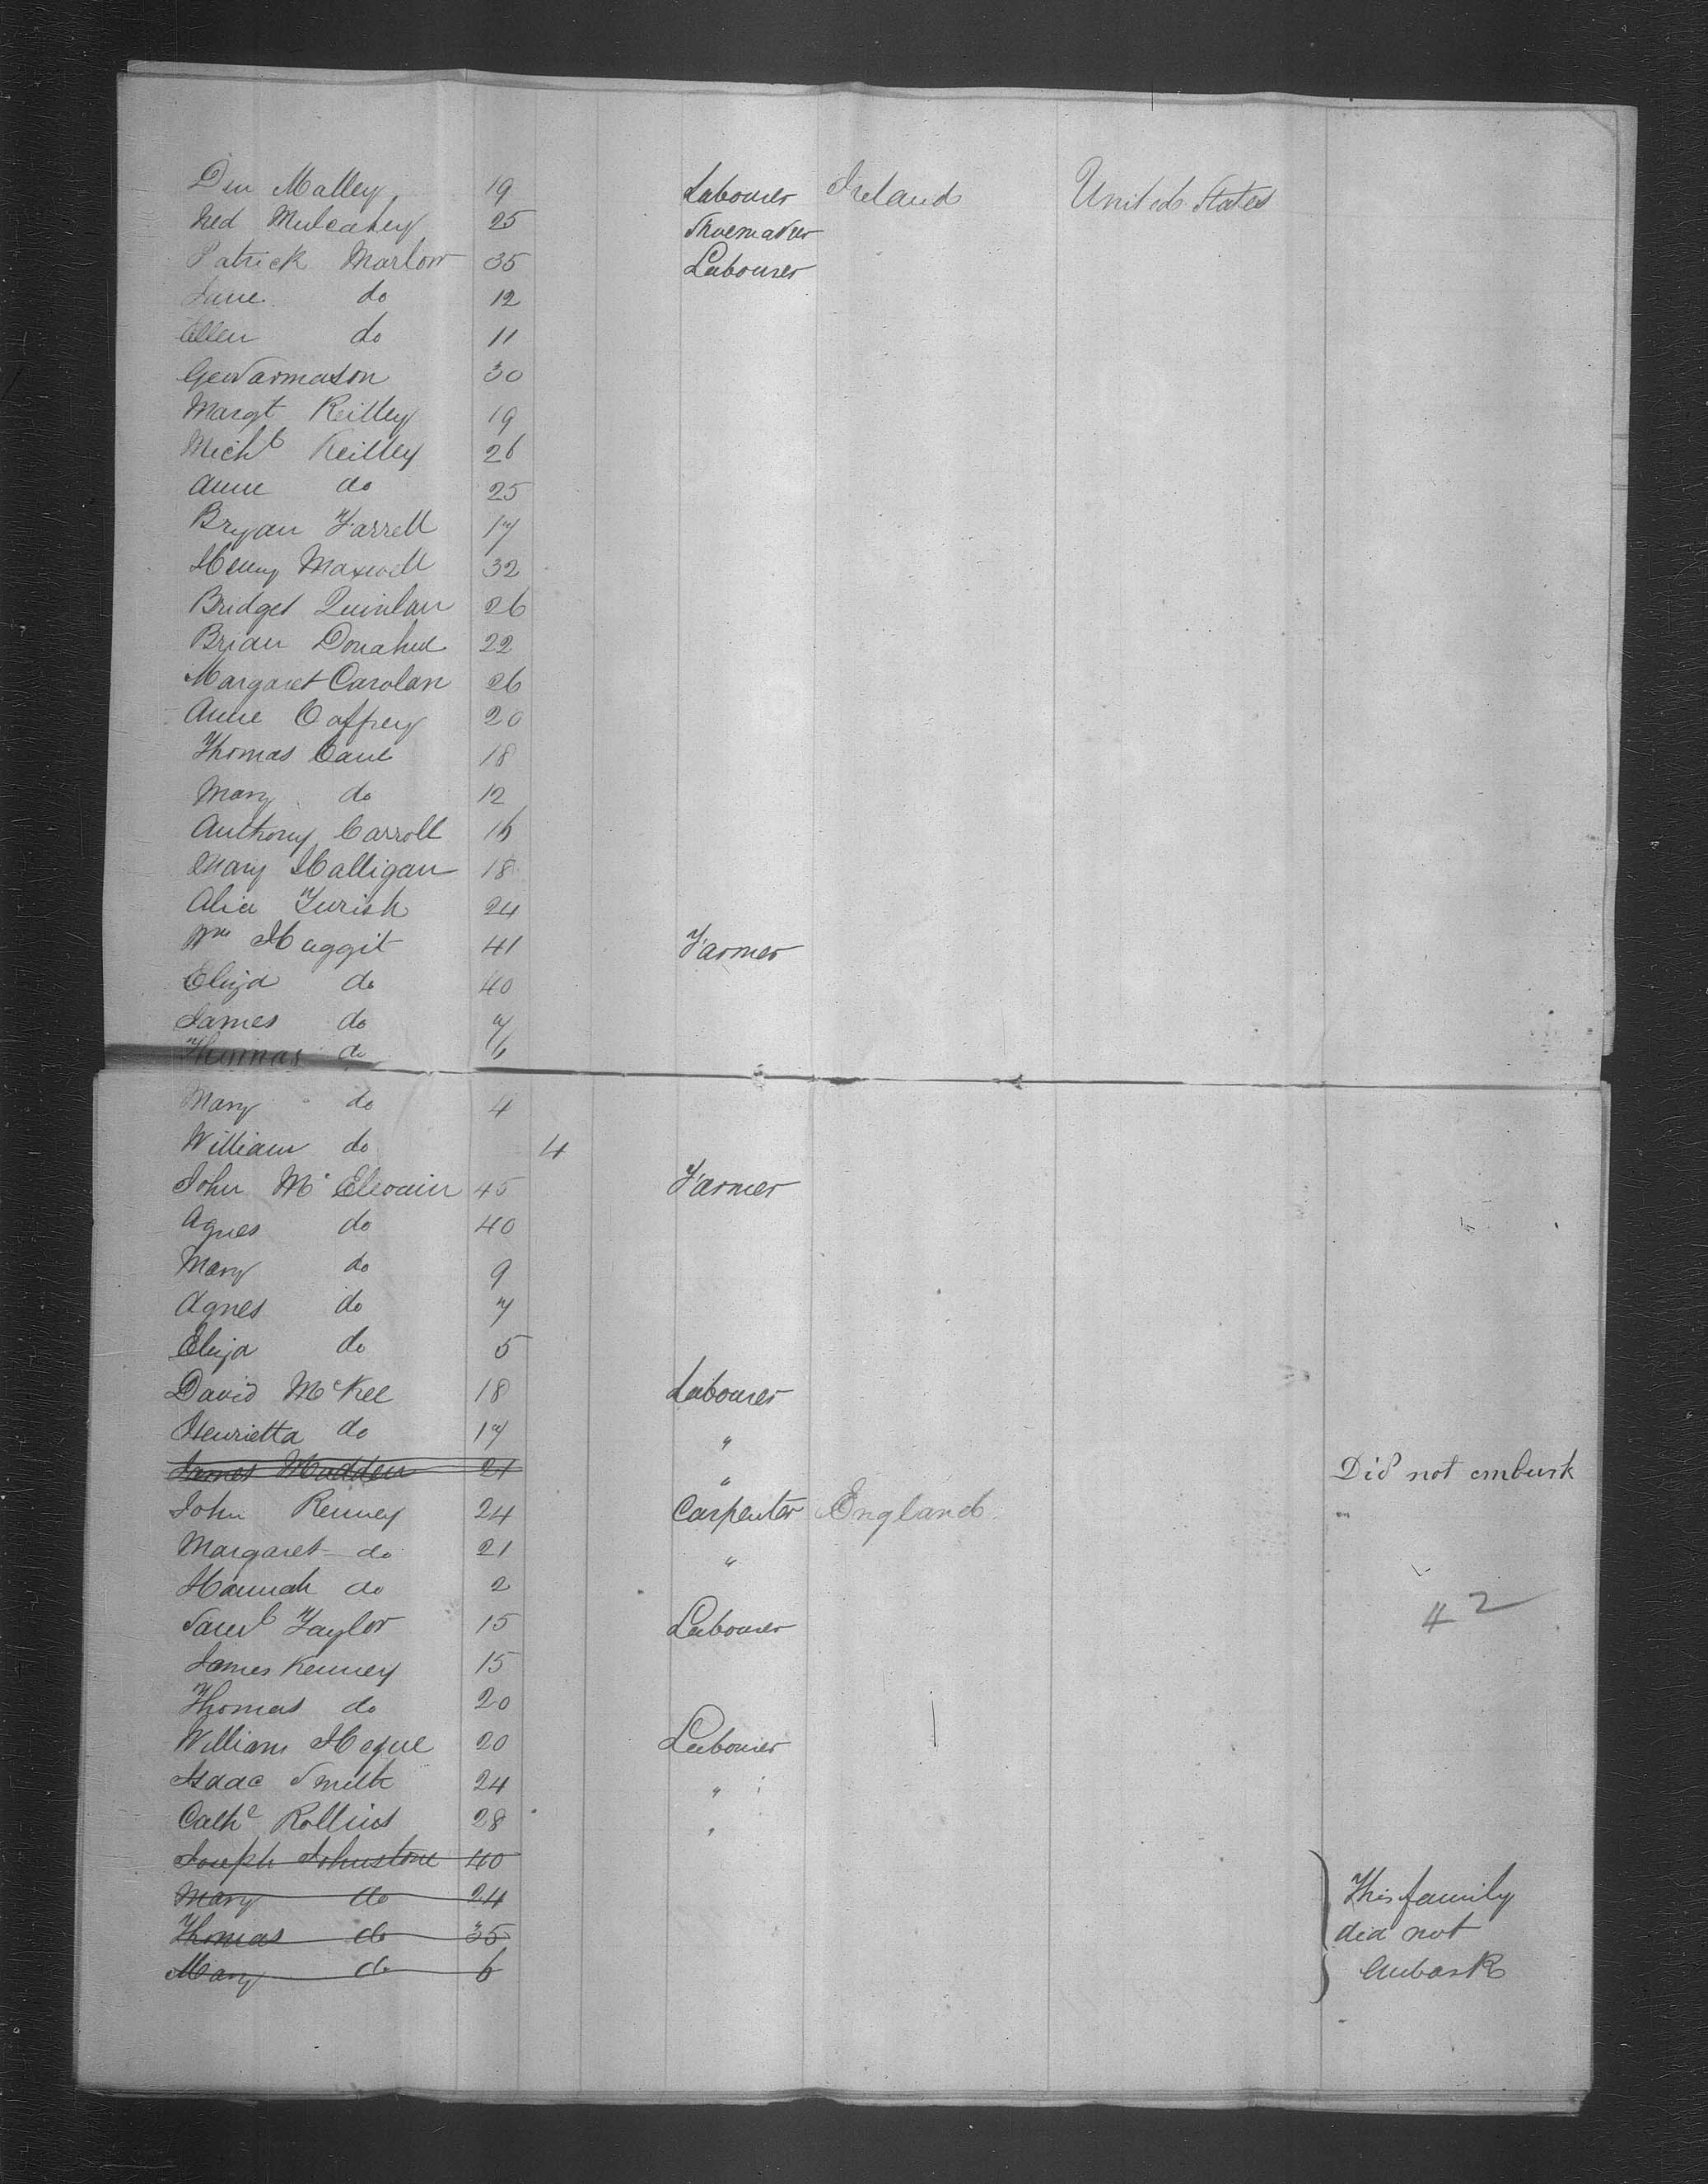 Den Malley 19 Labourer Ireland United States
Ned Mulcahey 25 Shoemaker
Patrick Marlow 35 Labourer
Jane do 12
Ellen do 11
30
Margt Reilley 19
Michl Reilley 26
Anne do 25
Bryan Farrell 17
Henry Maxwell 32
Bridget Quinlan 26
Brian Donahue 22
Margaret Carolan 26
Anne Caffrey 20
Thomas Cane 18
Mary do 12
Anthony Carroll 16
Mary Halligan 18
Alice 24
Wm Haggit 41 Farmer
Eliza do 40
James do 7
Thomas do 6
Mary do 4
William do 4
John Mc Elevain 45 Farmer
Agnes do 40
Mary do 9
Agnes do 7
Eliza do 5
David McKee 18 Labourer
Henrietta do 17 "
James Madden 21 " Did not embark
John Kenney 24 Carpenter England "
Margaret do 21 "
Hannah do 2
Saml Taylor 15 Labourer
42
James Kenney 15
Thomas do 20
William 20 Labourer
Isaac Smith 24 "
Cathe Rollins 28 "
Joseph Johnstone 40
Mary do 24 This family
Thomas do 35 did not
Mary do 6 Embark